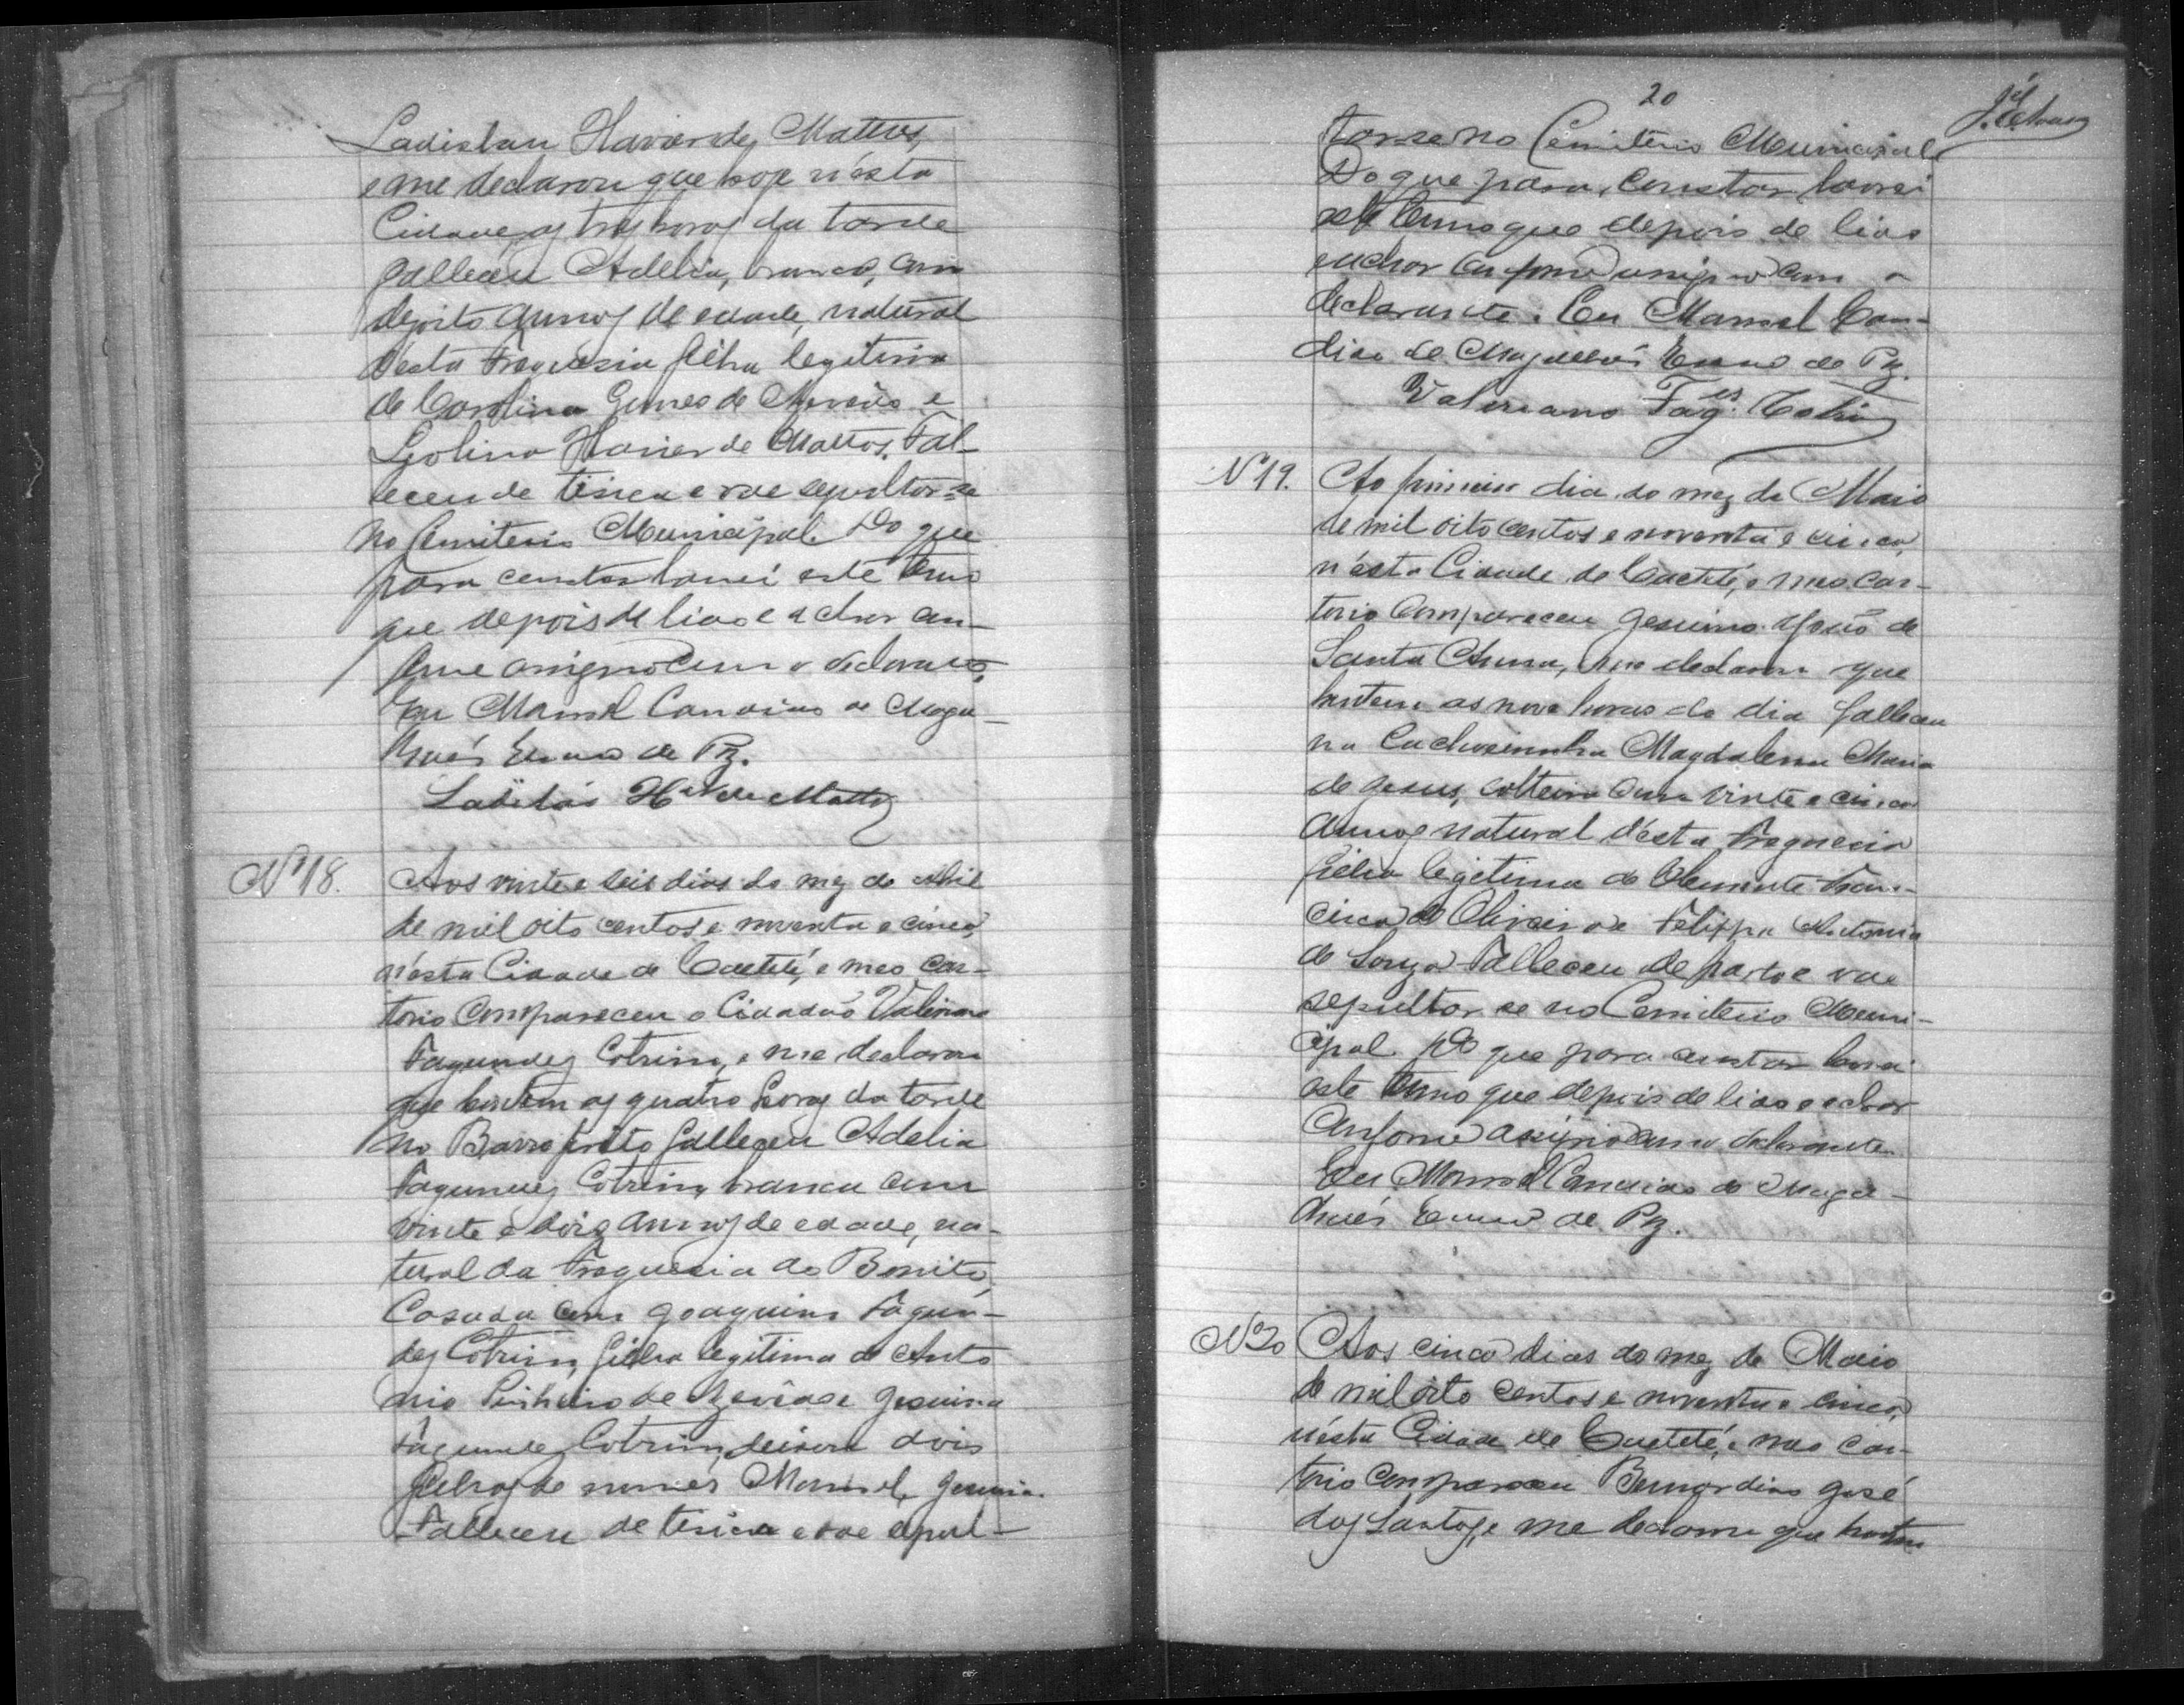 Ladislau Havier de Mattos,
e me declarou que hoje n'ésta
Cidade as tres horas da tarde
falleceu Adelia, branca, com
dejoito annos de edade, natural
desta freguesia filha legitima
de Carolina Gomes de Azevêdo e
Liolino Havier de Mattos. Fal-
leceu de tisica e vae sepultar-se
no Cemiterio Municipal. Do que
para constar lavrei este termo
que depois de lido e achar con-
forme assigno com o declarante.
Eu Manoel Candido de Maga-
lhaés Escrivão de Paz.
Ladisláo Hvier de Mattos
Nº 18.
Aos vinte e seis dias do mez de Abril
de mil oito centos e noventa e cinco,
n'ésta Cidade de Caetité, e meo Car-
torio Compareceu o Cidadão Valeriano
Fagundes Cotrim, e me declarou
que hontem as quatro horas da tarde
no Barro preto falleceu Adelia
Fagundes Cotrim, branca com
vinte e dois annos de edade, na-
tural da Freguesia do Bonito,
Casada com Joaquim Fagun-
des Cotrim, filha legitima de Anto
nio Pinheiro de Azevêdo e Jesuina
Fagundes Cotrim, deixou dois
filhos de nomes Manoel, Jesuina.
Falleceu de tisica e vae sepul-
20
tar-se no Cemiterio Municipal
Do que para constar lavrei
este termo que depois de lido
e achar conforme assigno com o
declarante. Eu Manoel Can-
dido de Magalhaés Escrivão de Paz.
Valeriano Fag.es Cotrim
Nº 19.
Ao primeiro dia do mez de Maio
de mil oito centos e noventa e cinco,
n'ésta Cidade de Caetité, e meo Car-
torio Compareceu Jesuino José de
Santa Anna, e me declarou que
hontem as nove horas do dia falleceu
na Cachoeirinha Magdalena Maria
de Jesus, solteira com vinte e cinco
annos natural d'ésta freguesia
filha legitima de Clemente Fran-
cisco de Oliveira e Felippa Antonia
de Souza. Falleceu de parto e vae
sepultar se no Cemiterio Muni-
cipal. Do que para constar lavrei
este termo que depois de lido e achar
Conforme assigno com o declarante.
Eu Manoel Candido de Maga-
lhaés Escrivão de Paz.
Nº 20
Aos cinco dias do mez de Maio
de mil oito centos e noventa e cinco,
n'ésta Cidade de Caetité, e meo Car-
torio Compareceu Bernardino José
dos Santos, e me declarou que hontem